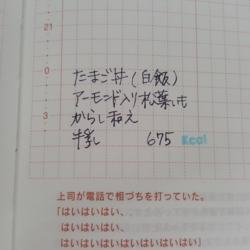 21
0
たまご丼(白飯)
アーモンド入り松葉いも
3
からし和え
牛乳 675 Kcal
上司が電話で相づちを打っていた。
「はいはいはい、
はいはいはい、
はいはいはいはいはいはいはい」